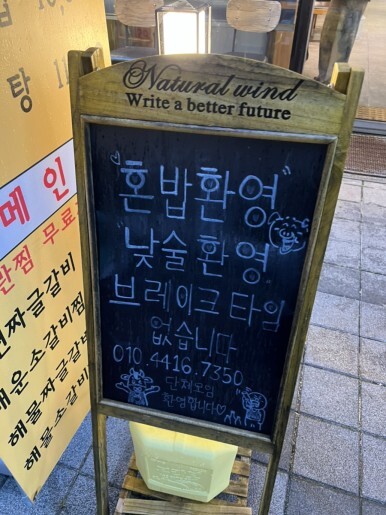 Natural wind
Write a better future
"혼밥환영"
"낮술환영"
브레이크 타임
없습니다
010 4416.7350
단체모임
환영합니다♡
탕
메인
짜글갈비
매운소갈비찜
해물짜글갈비
해물소갈비